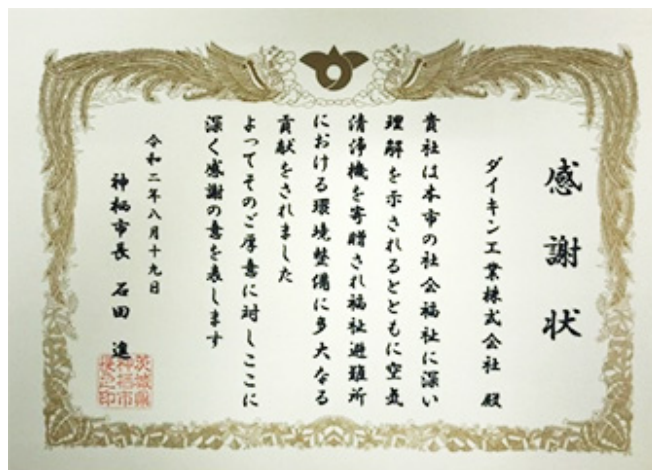 感謝状
ダイキン工業株式会社 殿
貴社は本市の社会福祉に深い
理解を示されるとともに空気
清浄機を寄贈され福祉避難所
における環境整備に多大なる
貢献をされました
よってそのご厚意に対しここに
深く感謝の意を表します
令和二年八月十九日
神栖市長 石田 進
茨城県
神栖市
長之印